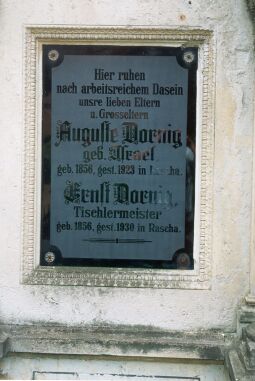 Hier ruhen
nach arbeitsreichem Dasein
unsre lieben Eltern
u. Grosseltern
Auguste Dornig
geb. Israel
geb. 1856, gest. 1923 in Rascha.
Ernst Dornig,
Tischlermeister
geb. 1856, gest. 1930 in Rascha.